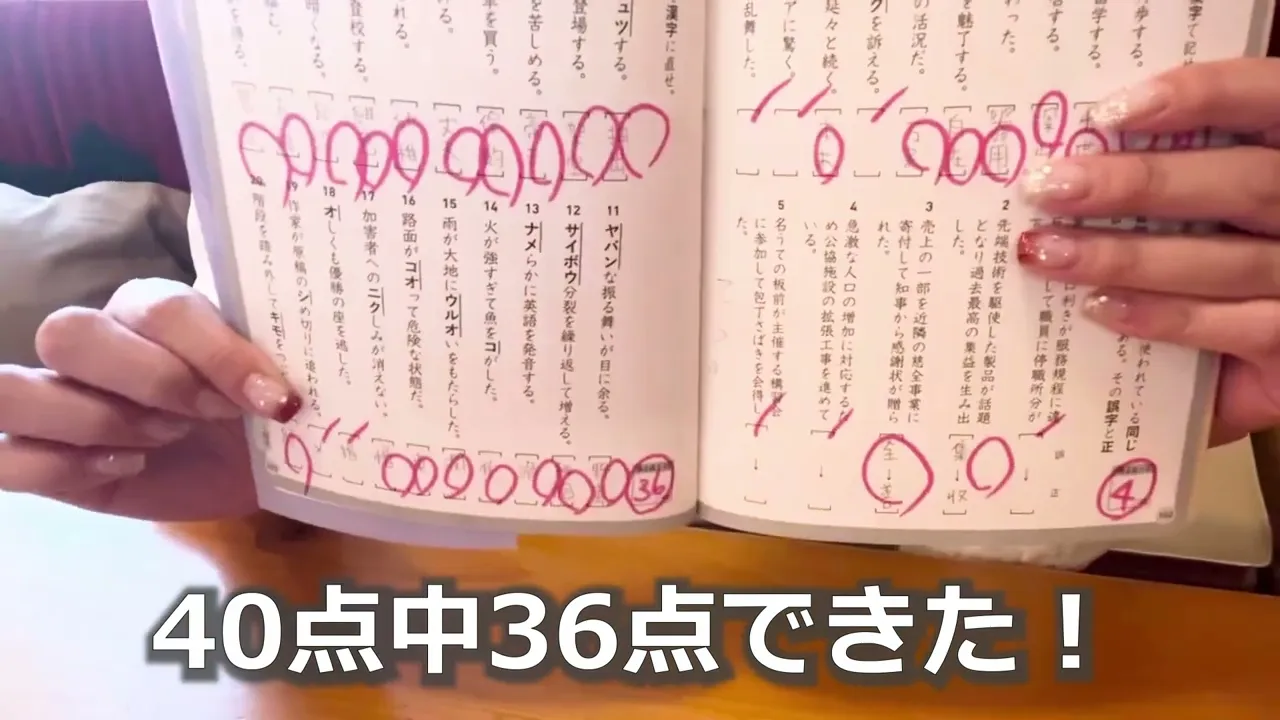 歩する。
留学する。
わった。
を魅了する。
の活況だ。
クを訴える。
延々と続く。
アに驚く。
乱舞した。
使われている同じ
ある。その誤字と正
誤
正
口利きが服務規程に違
して職員に停職所分が
2 先端技術を駆使した製品が話題
となり過去最高の集益を生み出
した。
3 売上の一部を近隣の慈全事業に
寄付して知事から感謝状が贈ら
れた。
4 急激な人口の増加に対応するた
め公協施設の拡張工事を進めて
いる。
5 名うての板前が主催する構習会
に参加して包丁さばきを会得し
た。
集→収
全→善
4
漢字に直せ。
ュツする。
登場する。
を苦しめる。
車を買う。
れる。
登校する。
暗くなる。
11 ヤバンな振る舞いが目に余る。
12 サイボウ分裂を繰り返して増える。
13 ナメらかに英語を発音する。
14 火が強すぎて魚をコがした。
15 雨が大地にウルオいをもたらした。
16 路面がコオって危険な状態だ。
17 加害者へのニクしみが消えない。
18 オしくも優勝の座を逃した。
19 作家が原稿のシめ切りに追われる。
20 階段を踏み外してキモをつ
36
40点中36点できた！